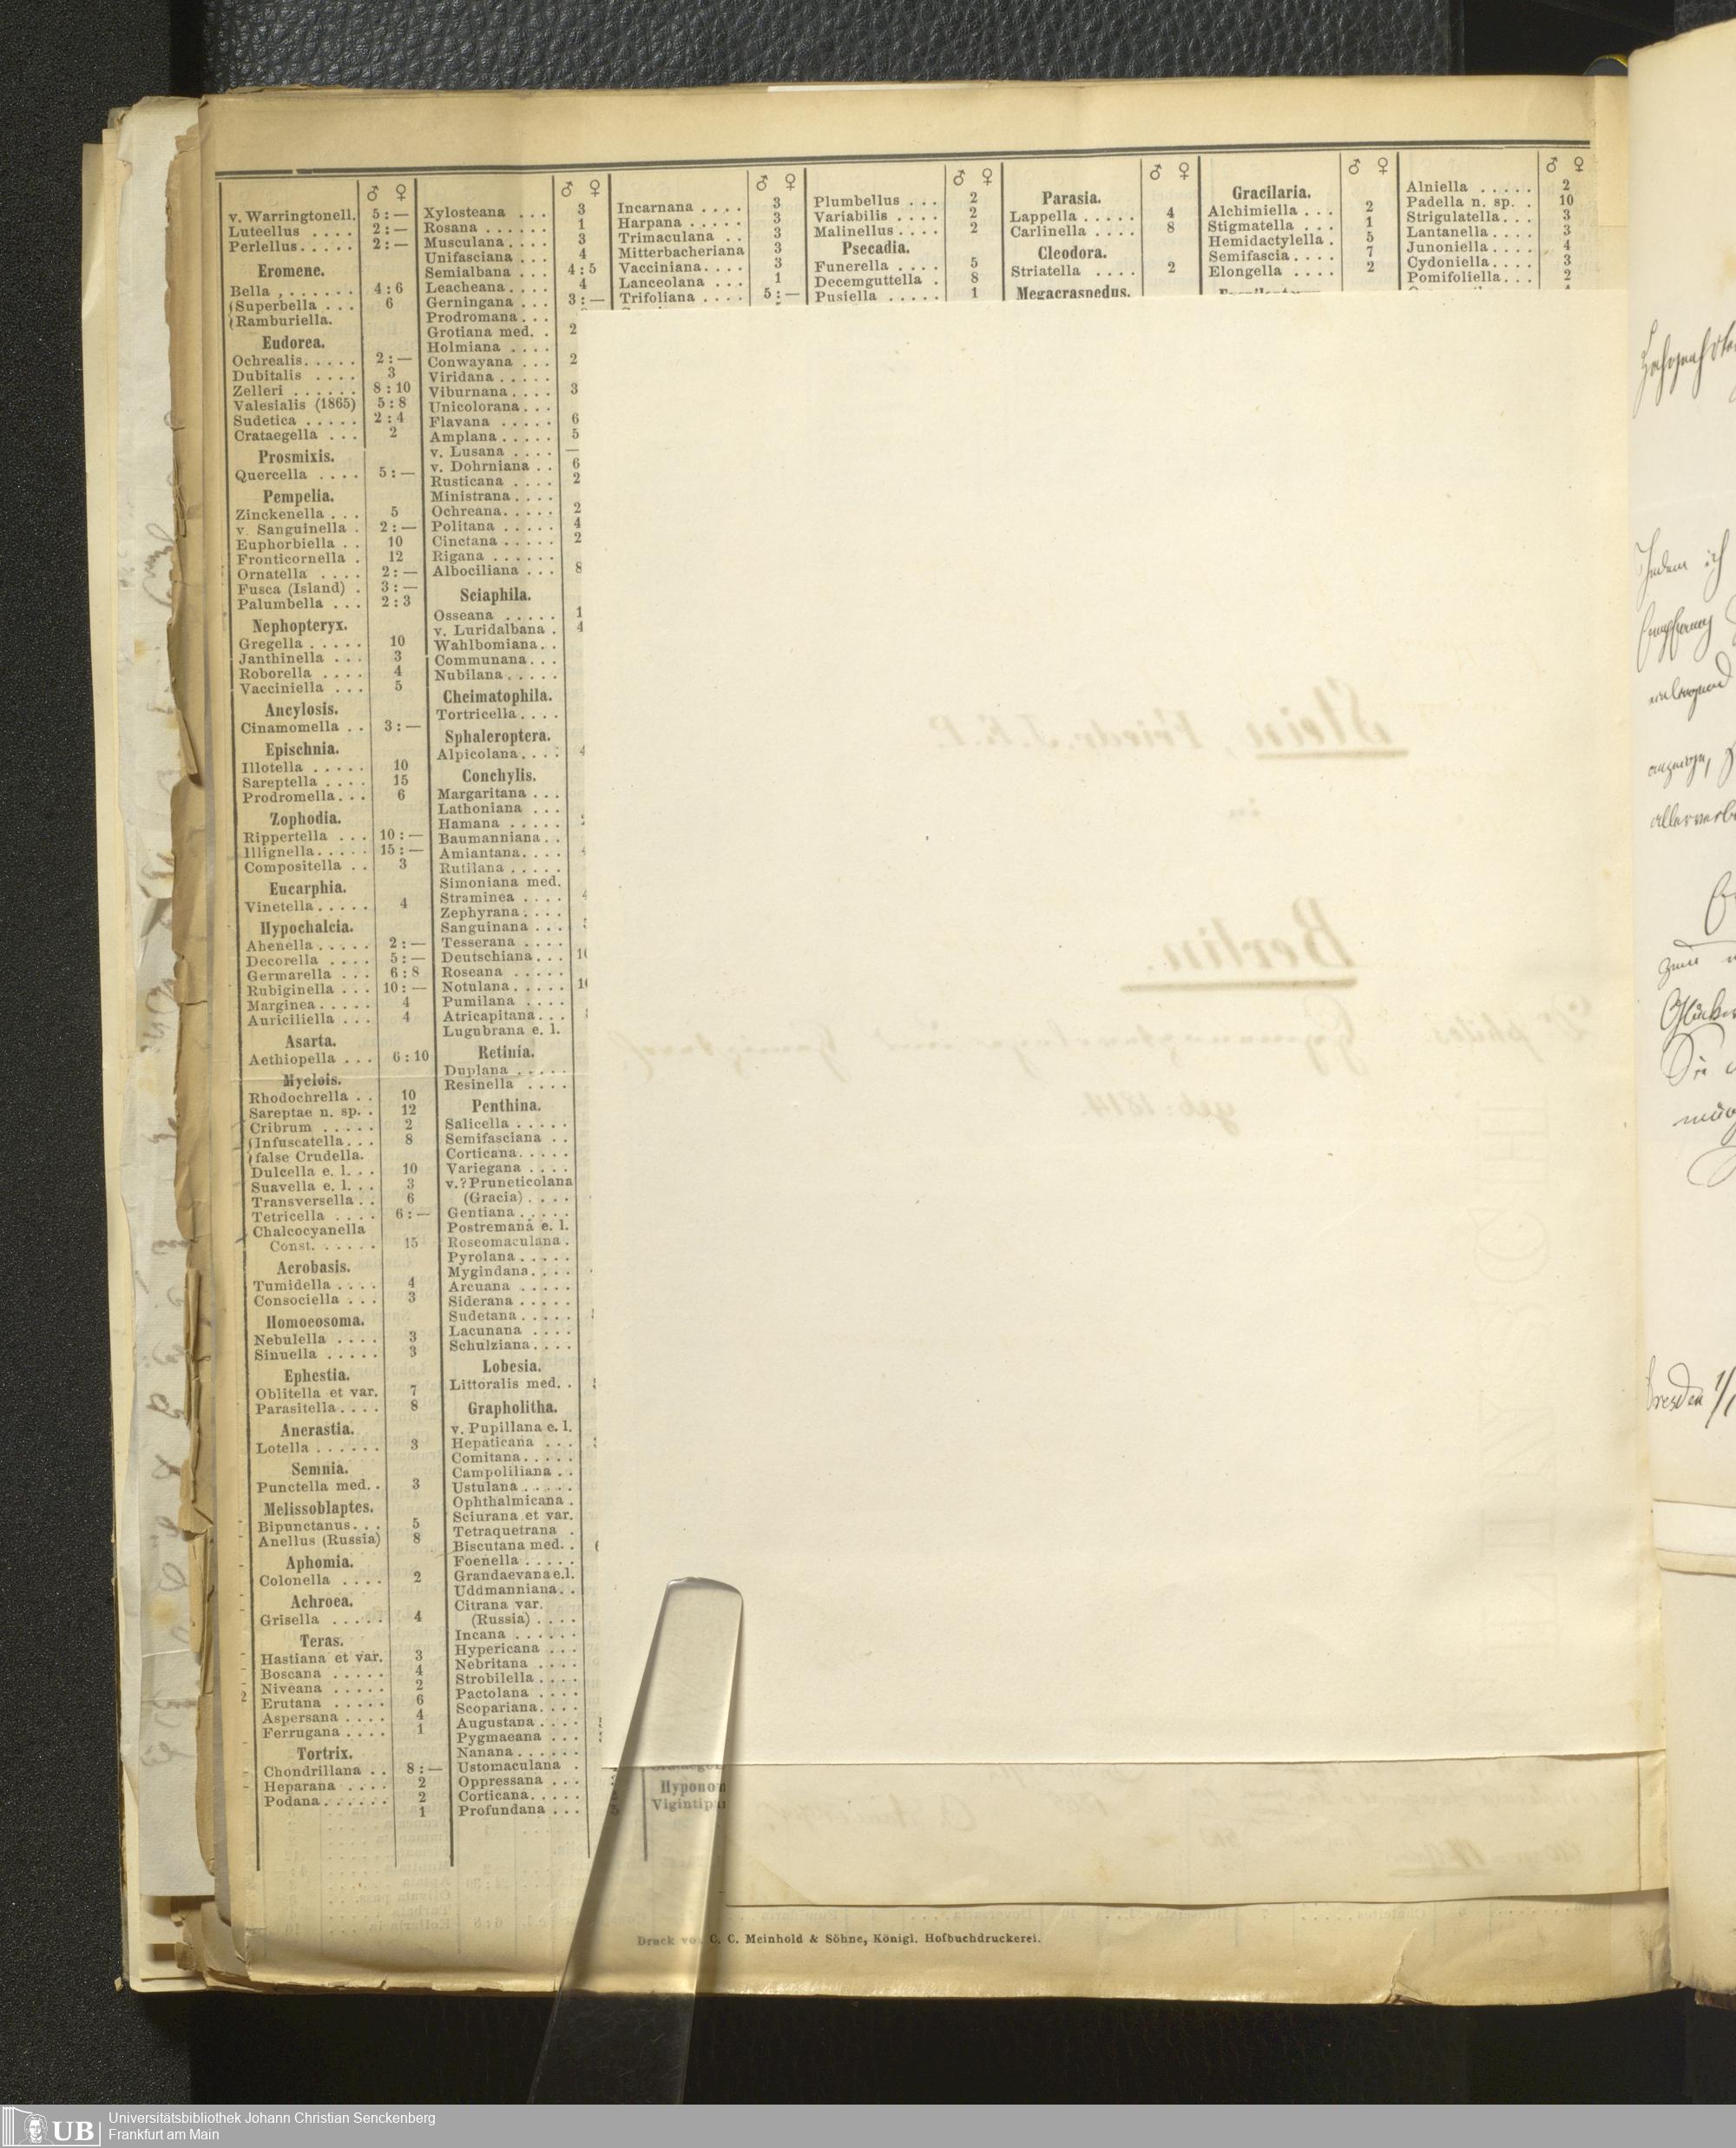 ♂ ♀
v. Warringtonell. 5 : —
Luteellus . . . . 2 : —
Perlellus . . . . . 2 : —
Eromene.
Bella , . . . . . . 4 : 6
Superbella . . . 6
Ramburiella.
Eudorea.
Ochrealis . . . . . 2 : —
Dubitalis . . . . 3
Zelleri . . . . . . 8 : 10
Valesialis (1865) 5 : 8
Sudetica . . . . . 2 : 4
Crataegella . . . 2
Prosmixis.
Quercella . . . . 5 : —
Pempelia.
Zinckenella . . . 5
v. Sanguinella . 2 : —
Euphorbiella . . 10
Fronticornella . 12
Ornatella . . . . 2 : —
Fusca (Island) . 3 : —
Palumbella . . . 2 : 3
Nephopteryx.
Gregella . . . . . 10
Janthinella . . . 3
Roborella . . . . 4
Vacciniella . . . 5
Ancylosis.
Cinamomella . . 3 : —
Epischnia.
Illotella . . . . . 10
Sareptella . . . . 15
Prodromella . . . 6
Zophodia.
Rippertella . . . 10 : —
Illignella . . . . . 15 : —
Compositella . . 3
Eucarphia.
Vinetella . . . . . 4
Hypochalcia.
Ahenella . . . . . 2 : —
Decorella . . . . 5 : —
Germarella . . . 6 : 8
Rubiginella . . . 10 : —
Marginea . . . . . 4
Auriciliella . . . 4
Asarta.
Aethiopella . . . 6 : 10
Myelois.
Rhodochrella . . 10
Sareptae n. sp. . 12
Cribrum . . . . . 2
Infuscatella . . . 8
false Crudella.
Dulcella e. l. . . 10
Suavella e. l. . . 3
Transversella . . 6
Tetricella . . . . 6 : —
Chalcocyanella
Const. . . . . . 15
Acrobasis.
Tumidella . . . . 4
Consociella . . . 3
Homoeosoma.
Nebulella . . . . 3
Sinuella . . . . . 3
Ephestia.
Oblitella et var. 7
Parasitella . . . . 8
Anerastia.
Lotella . . . . . . 3
Semnia.
Punctella med. . 3
Melissoblaptes.
Bipunctanus . . . 5
Anellus (Russia) 8
Aphomia.
Colonella . . . . 2
Achroea.
Grisella . . . . . 4
Teras.
Hastiana et var. 3
Boscana . . . . . 4
Niveana . . . . . 2
Erutana . . . . . 6
Aspersana . . . . 4
Ferrugana . . . . 1
Tortrix.
Chondrillana . . 8 : —
Heparana . . . . 2
Podana . . . . . . 2
1
♂ ♀
Xylosteana . . . 3
Rosana . . . . . . 1
Musculana . . . . 3
Unifasciana . . . 4
Semialbana . . . 4 : 5
Leacheana . . . . 4
Gerningana . . . 3 : —
Prodromana . . .
Grotiana med. . 2
Holmiana . . . .
Conwayana . . . 2
Viridana . . . . .
Viburnana . . . . 3
Unicolorana . . .
Flavana . . . . . 6
Amplana . . . . . 5
v. Lusana . . . . —
v. Dohrniana . . 6
Rusticana . . . . 2
Ministrana . . . .
Ochreana . . . . . 2
Politana . . . . . 4
Cinctana . . . . . 2
Rigana . . . . . .
Albociliana . . . 8
Sciaphila.
Osseana . . . . . 1
v. Luridalbana . 4
Wahlbomiana . .
Communana . . .
Nubilana . . . . .
Cheimatophila.
Tortricella . . . .
Sphaleroptera.
Alpicolana . . . . 4
Conchylis.
Margaritana . . .
Lathoniana . . .
Hamana . . . . .
Baumanniana . .
Amiantana . . . .
Rutilana . . . . .
Simoniana med.
Straminea . . . .
Zephyrana . . . .
Sanguinana . . .
Tesserana . . . .
Deutschiana . . .
Roseana . . . . .
Notulana . . . . .
Pumilana . . . .
Atricapitana . . .
Lugubrana e. l.
Retinia.
Duplana . . . . .
Resinella . . . .
Penthina.
Salicella . . . . .
Semifasciana . .
Corticana . . . . .
Variegana . . . .
v. ? Pruneticolana
(Gracia) . . . .
Gentiana . . . . .
Postremana e. l.
Roseomaculana .
Pyrolana . . . . .
Mygindana . . . .
Arcuana . . . . .
Siderana . . . . .
Sudetana . . . . .
Lacunana . . . .
Schulziana . . . .
Lobesia.
Littoralis med. .
Grapholitha.
v. Pupillana e. l.
Hepaticana . . .
Comitana . . . . .
Campoliliana . .
Ustulana . . . . .
Ophthalmicana .
Sciurana et var.
Tetraquetrana .
Biscutana med. .
Foenella . . . . .
Grandaevana e.l.
Uddmanniana . .
Citrana var.
(Russia) . . . .
Incana . . . . . .
Hypericana . . .
Nebritana . . . .
Strobilella . . . .
Pactolana . . . .
Scopariana . . . .
Augustana . . . .
Pygmaeana . . .
Nanana . . . . . .
Ustomaculana .
Oppressana . . .
Corticana . . . . .
Profundana . . .
♂ ♀
Incarnana . . . . 3
Harpana . . . . . 3
Trimaculana . . 3
Mitterbacheriana 3
Vacciniana . . . . 3
Lanceolana . . . 1
Trifoliana . . . . 5 : —
Hyponom
Vigintip
♂ ♀
Plumbellus . . . 2
Variabilis . . . . 2
Malinellus . . . . 2
Psecadia.
Funerella . . . . 5
Decemguttella . 8
Pusiella . . . . . 1
♂ ♀
Parasia.
Lappella . . . . . 4
Carlinella . . . . 8
Cleodora.
Striatella . . . . 2
Megacraspedus.
♂ ♀
Gracilaria.
Alchimiella . . . 2
Stigmatella . . . 1
Hemidactylella . 5
Semifascia . . . . 7
Elongella . . . . 2
♂ ♀
Alniella . . . . . 2
Padella n. sp. . 10
Strigulatella . . . 3
Lantanella . . . . 3
Junoniella . . . . 4
Cydoniella . . . . 3
Pomifoliella . . . 2
Stein Friedr. J. E. P.
in
Berlin.
geb: 1814.
Druck von C. C. Meinhold & Söhne, Königl. Hofbuchdruckerei.
Indem ich
Dresden 1/1
UB
Universitätsbibliothek Johann Christian Senckenberg
Frankfurt am Main